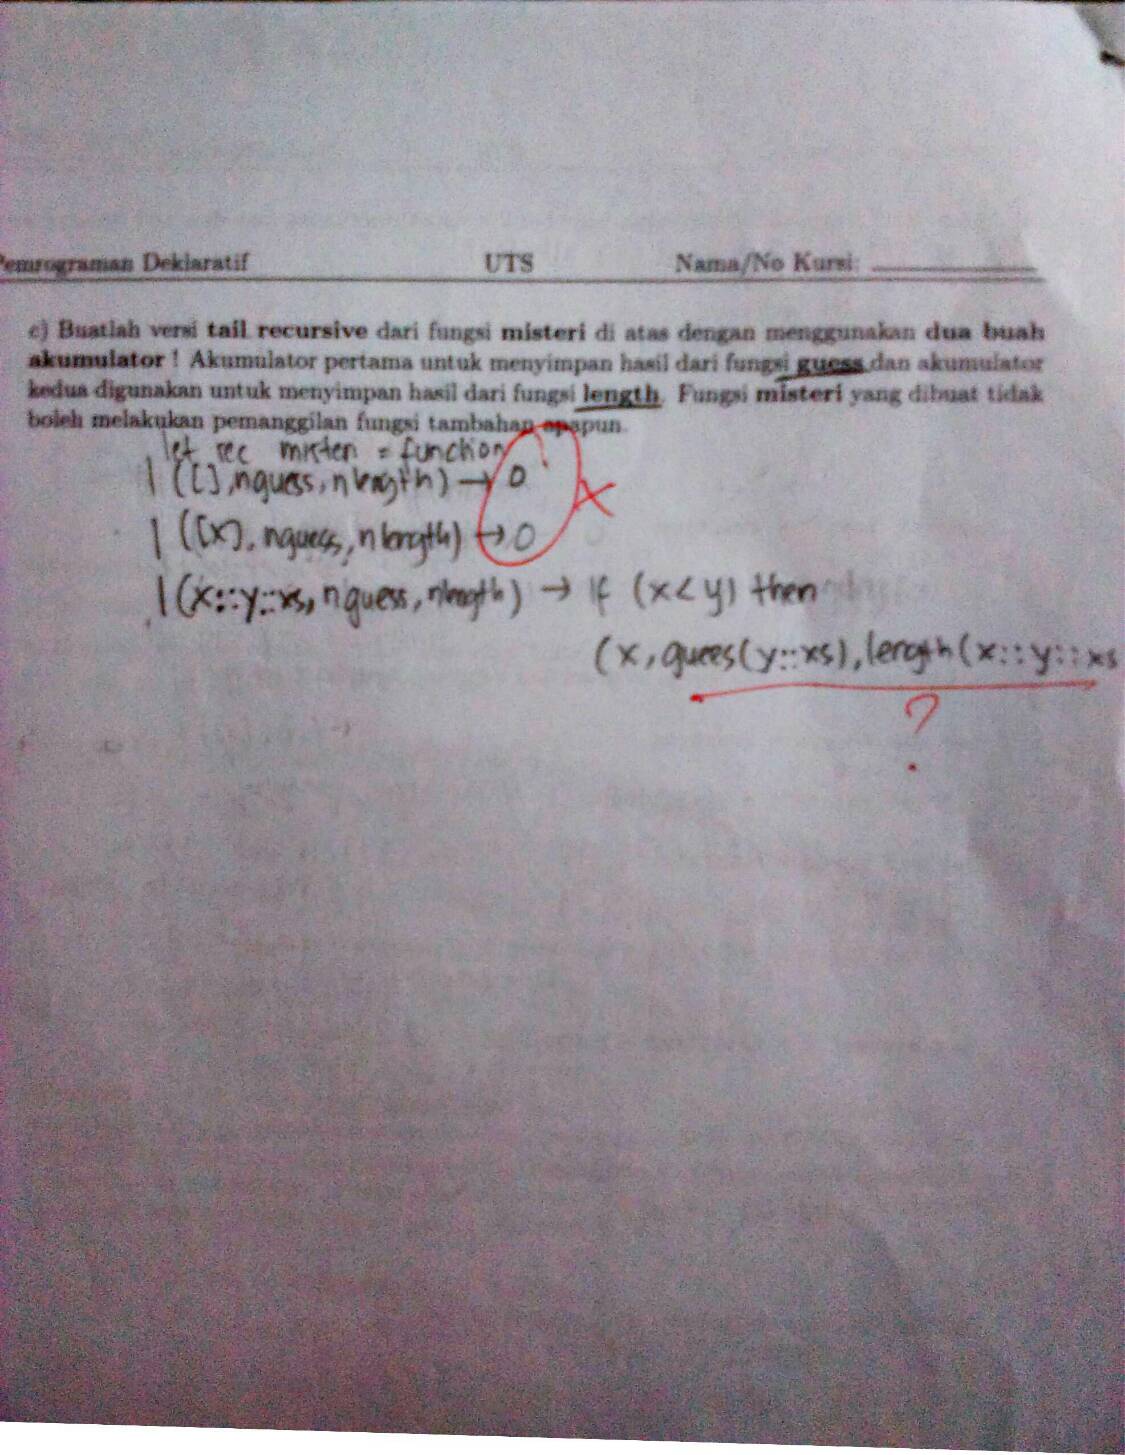 Pemrograman Deklaratif UTS Nama/No Kursi:
c) Buatlah versi tail recursive dari fungsi misteri di atas dengan menggunakan dua buah
akumulator ! Akumulator pertama untuk menyimpan hasil dari fungsi guess dan akumulator
kedua digunakan untuk menyimpan hasil dari fungsi length. Fungsi misteri yang dibuat tidak
boleh melakukan pemanggilan fungsi tambahan apapun.
let rec misteri = function
| ([], nguess, nlength) → 0
| ([x], nguess, nlength) → 0
| (x::y::xs, nguess, nlength) → if (x < y) then
(x, guees(y::xs), length(x::y::xs
?